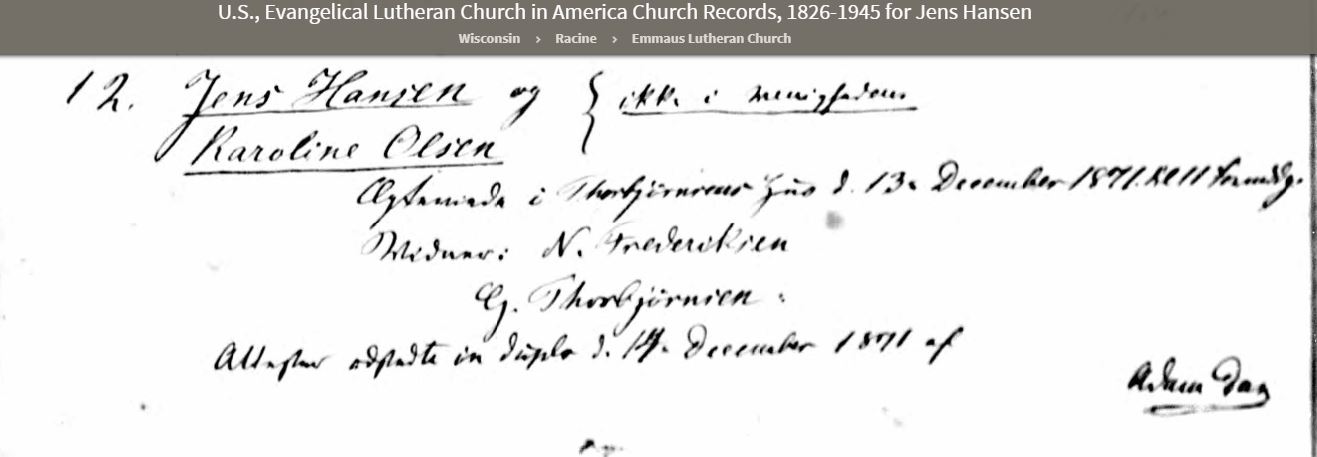 U.S., Evangelical Lutheran Church in America Church Records, 1826-1945 for Jens Hansen
Wisconsin › Racine › Emmaus Lutheran Church
12. Jens Hansen og { ikke i Menigheden.
Karoline Olsen
Ægteviede i Thorbjörnsens Hus d. 13. December 1871. Kl 11 Formidg.
Vidner: N. Frederiksen
G. Thorbjörnsen.
Attester udstedte in duplo d. 14. December 1871 af
Adam Dan